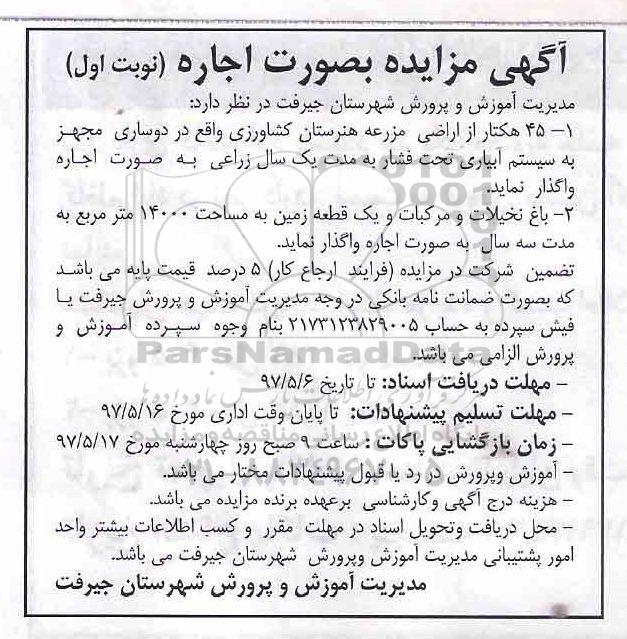 آگهی مزایده بصورت اجاره (نوبت اول)
مدیریت آموزش و پرورش شهرستان جیرفت در نظر دارد:
۱– ۴۵ هکتار از اراضی مزرعه هنرستان کشاورزی واقع در دوساری مجهز
به سیستم آبیاری تحت فشار به مدت یک سال زراعی به صورت اجاره
واگذار نماید.
۲– باغ نخیلات و مرکبات و یک قطعه زمین به مساحت ۱۴۰۰۰ متر مربع به
مدت سه سال به صورت اجاره واگذار نماید.
تضمین شرکت در مزایده (فرایند ارجاع کار) ۵ درصد قیمت پایه می باشد
که بصورت ضمانت نامه بانکی در وجه مدیریت آموزش و پرورش جیرفت یا
فیش سپرده به حساب ۲۱۷۳۱۲۳۸۲۹۰۰۵ بنام وجوه سپرده آموزش و
پرورش الزامی می باشد.
ParsNamadData
– مهلت دریافت اسناد: تا تاریخ ۹۷/۵/۶
– مهلت تسلیم پیشنهادات: تا پایان وقت اداری مورخ ۹۷/۵/۱۶
– زمان بازگشایی پاکات : ساعت ۹ صبح روز چهارشنبه مورخ ۹۷/۵/۱۷
– آموزش وپرورش در رد یا قبول پیشنهادات مختار می باشد.
– هزینه درج آگهی وکارشناسی برعهده برنده مزایده می باشد.
– محل دریافت وتحویل اسناد در مهلت مقرر و کسب اطلاعات بیشتر واحد
امور پشتیبانی مدیریت آموزش وپرورش شهرستان جیرفت می باشد.
مدیریت آموزش و پرورش شهرستان جیرفت